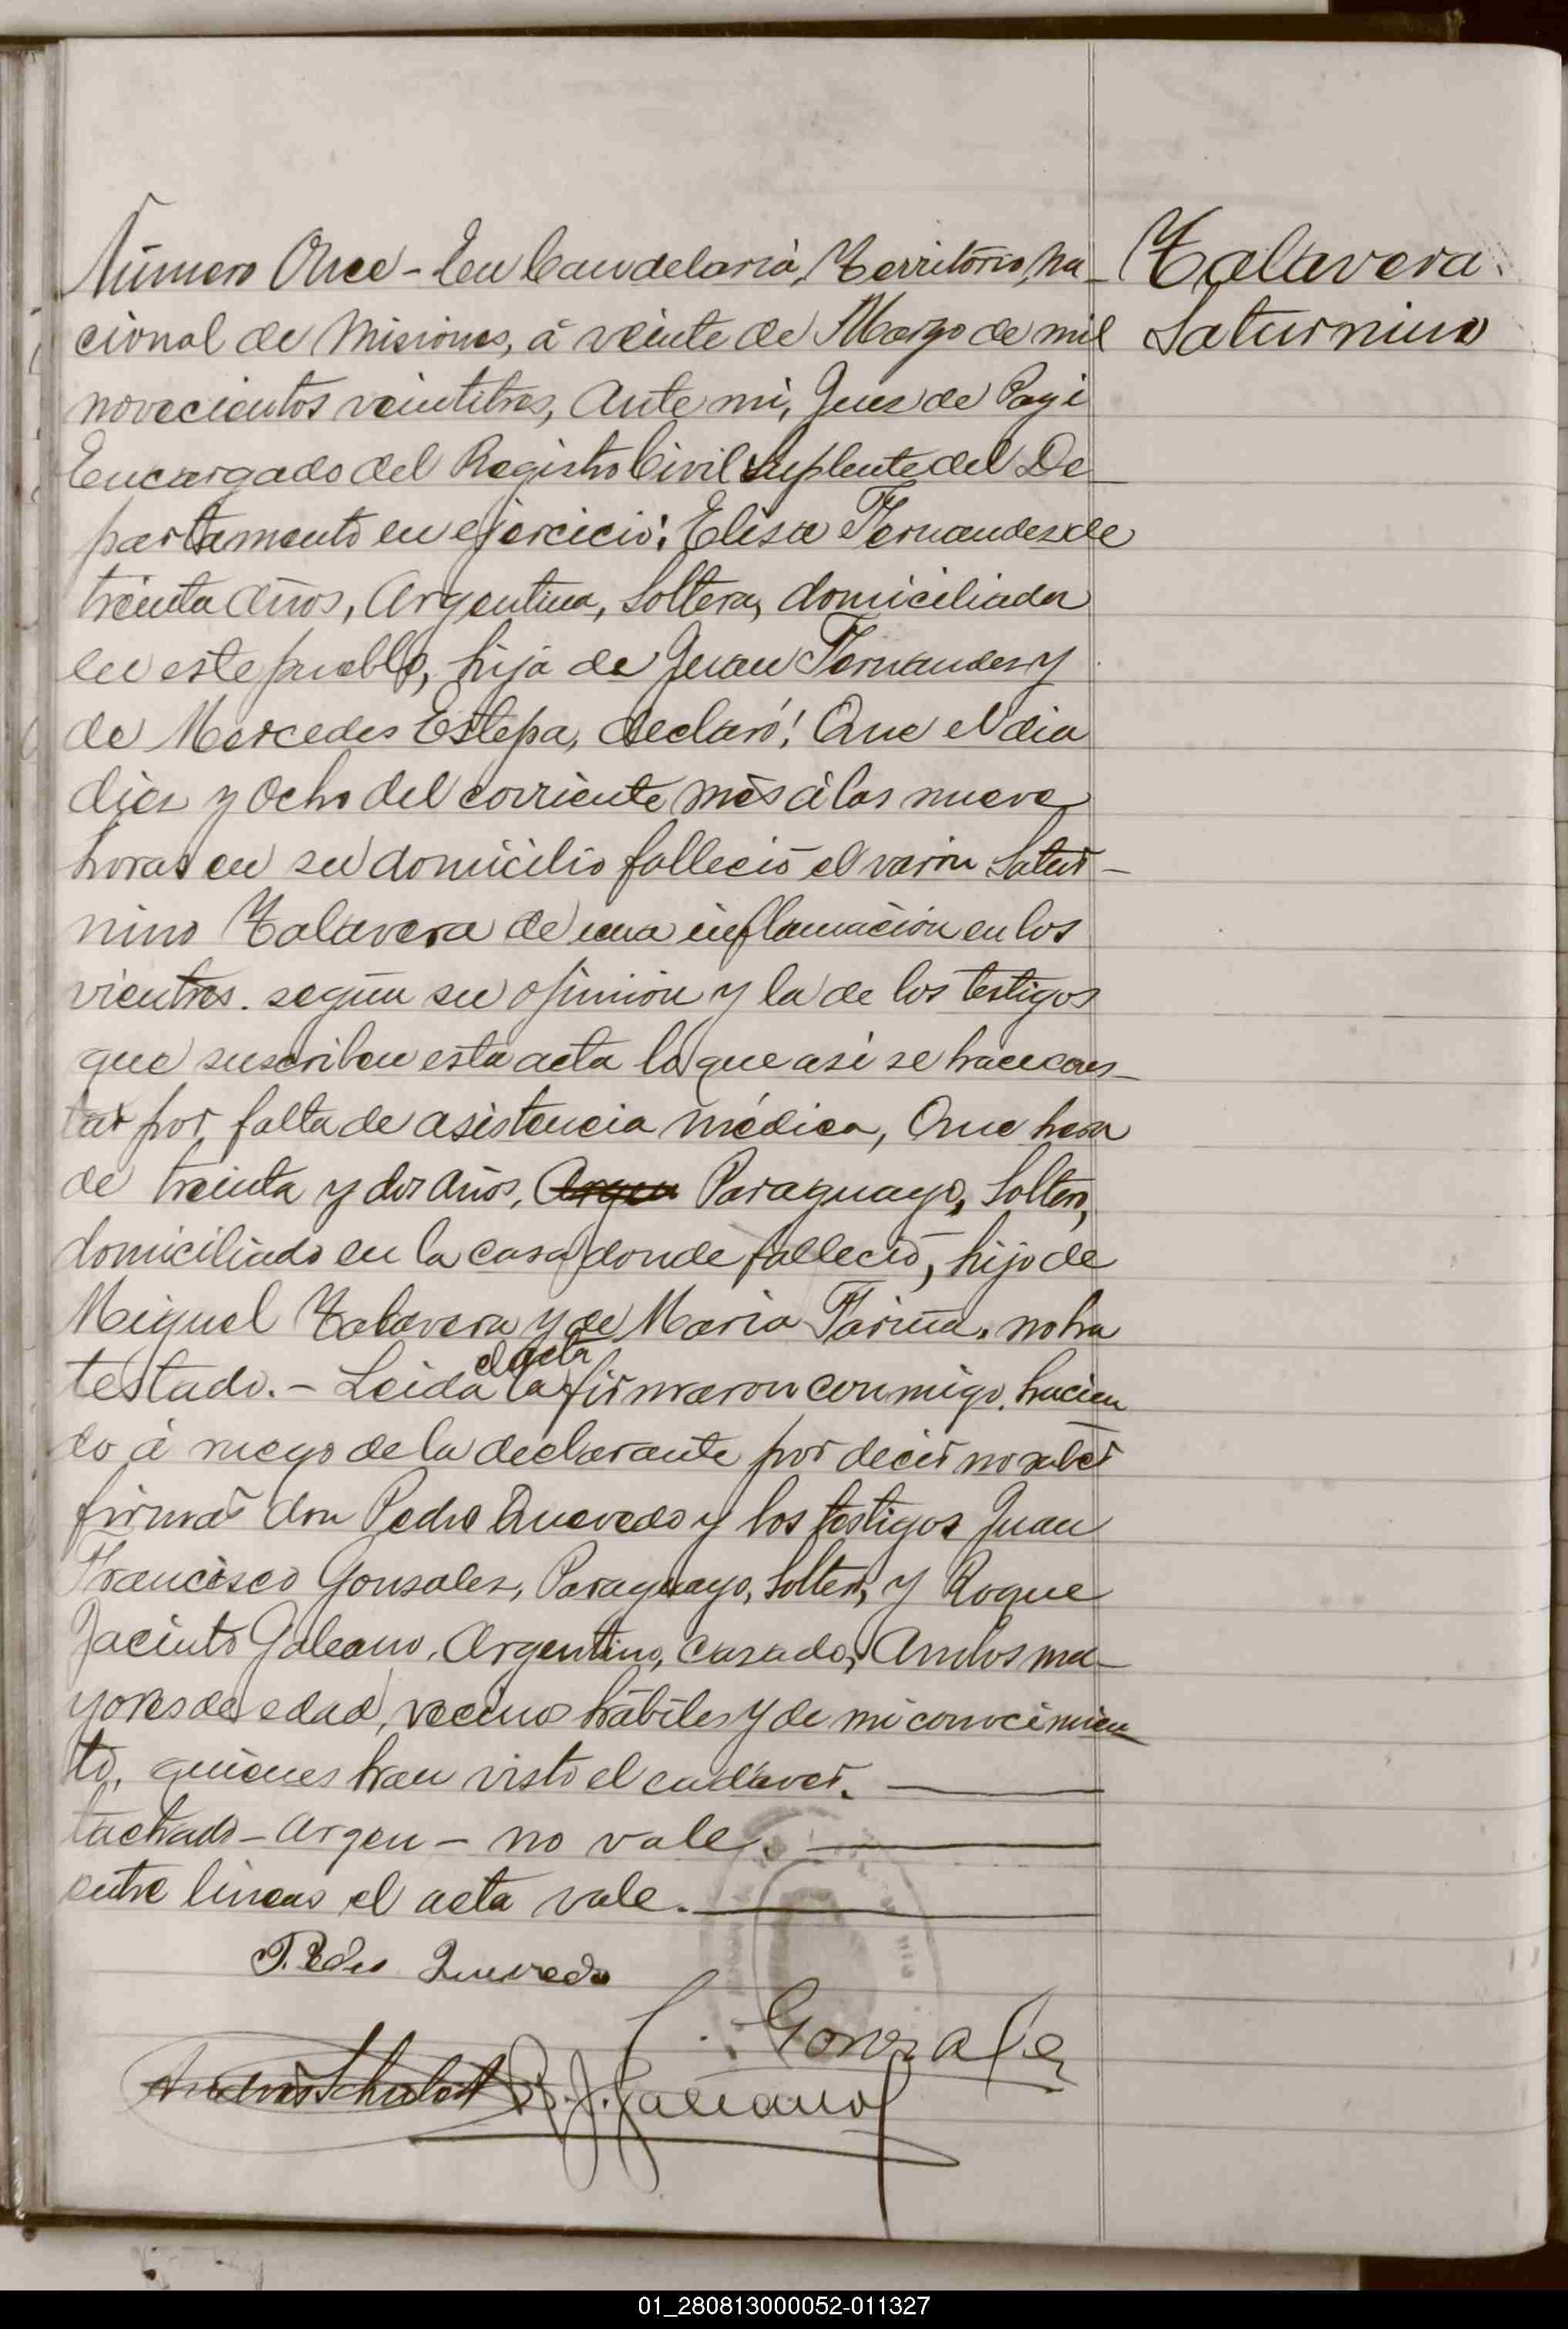 Número Once - En Candelaria, Territorio, na-
cional de Misiones, á veinte de Marzo de mil
novecientos veintitres, Ante mi, Juez de Paz i
Encargado del Registro Civil Suplente del De-
partamento en ejercicio: Elisa Fernandez de
treinta años, Argentina, Soltera, domiciliada
en este pueblo, hija de Juan Fernandez y
de Mercedes Estepa, declaró: Que el dia
diez y Ocho del corriente mes á las nueve
horas en su domicilio falleció el varon Satur-
nino Talavera de una inflamación en los
vientres. según su opinión y la de los testigos
que suscriben esta acta lo que asi se hace cons-
tar por falta de asistencia médica, Que hera
de treinta y dos años, Argen Paraguayo, Soltero,
domiciliado en la casa donde falleció, hijo de
Miguel Talavera y de Maria Fariña. no ha
testado. - Leida el acta la firmaron conmigo, hacien
do á ruego de la declarante por decir no saber
firmar don Pedro Quevedo y los testigos Juan
Francisco Gonsalez, Paraguayo, Soltero, y Roque
Jacinto Galeano, Argentino, casado, Ambos ma-
yores de edad, vecinos hábiles y de mi conocimien
to, quienes han visto el cadaver.
tachado - Argen - no vale.
entre lineas el acta vale.
Pedro Quevedo
Gonzalez
R. J. Galeano
Talavera
Saturnino
01_280813000052-011327